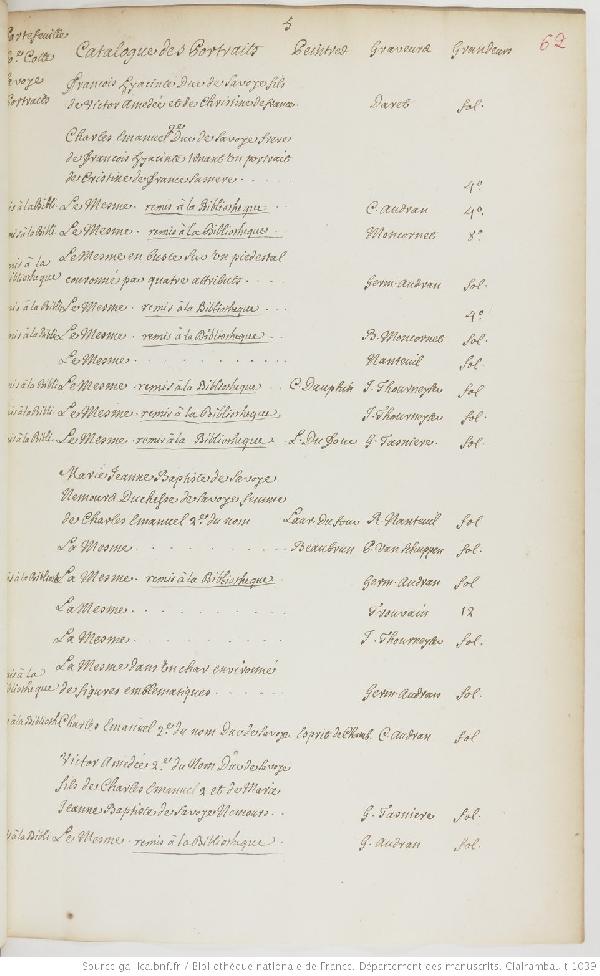 5
62
Portefeuille
Catalogue des Portraits Peintres Graveurs Grandeurs
Savoye
Portraits
François Hyacinte Duc de Savoye fils
de Victor Amedée et de Christine de france. Daret fol.
Charles Emanuel 2.e Duc de Savoye frere
de François Hyacinte tenant un portrait
de Cristine de France sa mere . . . . 4º.
mis à la Bibli. Le Mesme. remis à la Bibliotheque. C. Audran 4º.
mis à la Bibli. Le Mesme. remis à la Bibliotheque. Moncornet 8º.
Le Mesme en buste sur un piedestal
mis à la Bibliotheque couronné par quatre attributs. . . . Germ. Audran fol.
mis à la Bibli. Le Mesme. remis à la Bibliotheque . . . 4º
mis à la Bibli. Le Mesme. remis à la Bibliotheque . . B. Moncornet fol.
Le Mesme. . . . . . . . . . Nanteuil fol.
mis à la Bibli. Le Mesme. remis à la Bibliotheque . . C. Dauphin J. Thourneyse fol
mis à la Bibli. Le Mesme. remis à la Bibliotheque . . J. Thourneyse fol.
mis à la Bibli. Le Mesme. remis à la Bibliotheque . L. Du Four G. Tasniere. fol.
Marie Jeanne Baptiste de Savoye
Nemours Duchesse de Savoye femme
de Charles Emanuel 2.d du nom Laur. du four R. Nanteuil fol
La Mesme . . . . . . . Beaubrun P. Van Schuppen fol.
La Mesme. remis à la Bibliotheque. Germ. Audran fol
La Mesme. . . . . . . . . Trouvain 12
La Mesme. . . . . . . . . J. Thourneyse fol.
La Mesme dans un char environné
mis à la Bibliotheque de figures emblematiques . . . . . Germ. Audran fol.
Charles Emanuel 2.d du nom Duc de Savoye Esprit de Chamb. C. Audran fol
Victor Amedée 2.d du Nom Duc de Savoye
fils de Charles Emanuel 2 et de Marie
Jeanne Baptiste de Savoye Nemours. . G. Tasniere fol.
Le Mesme. remis à la Bibliotheque. G. Audran fol.
Source gallica.bnf.fr / Bibliothèque nationale de France. Département des manuscrits. Clairambault 1039